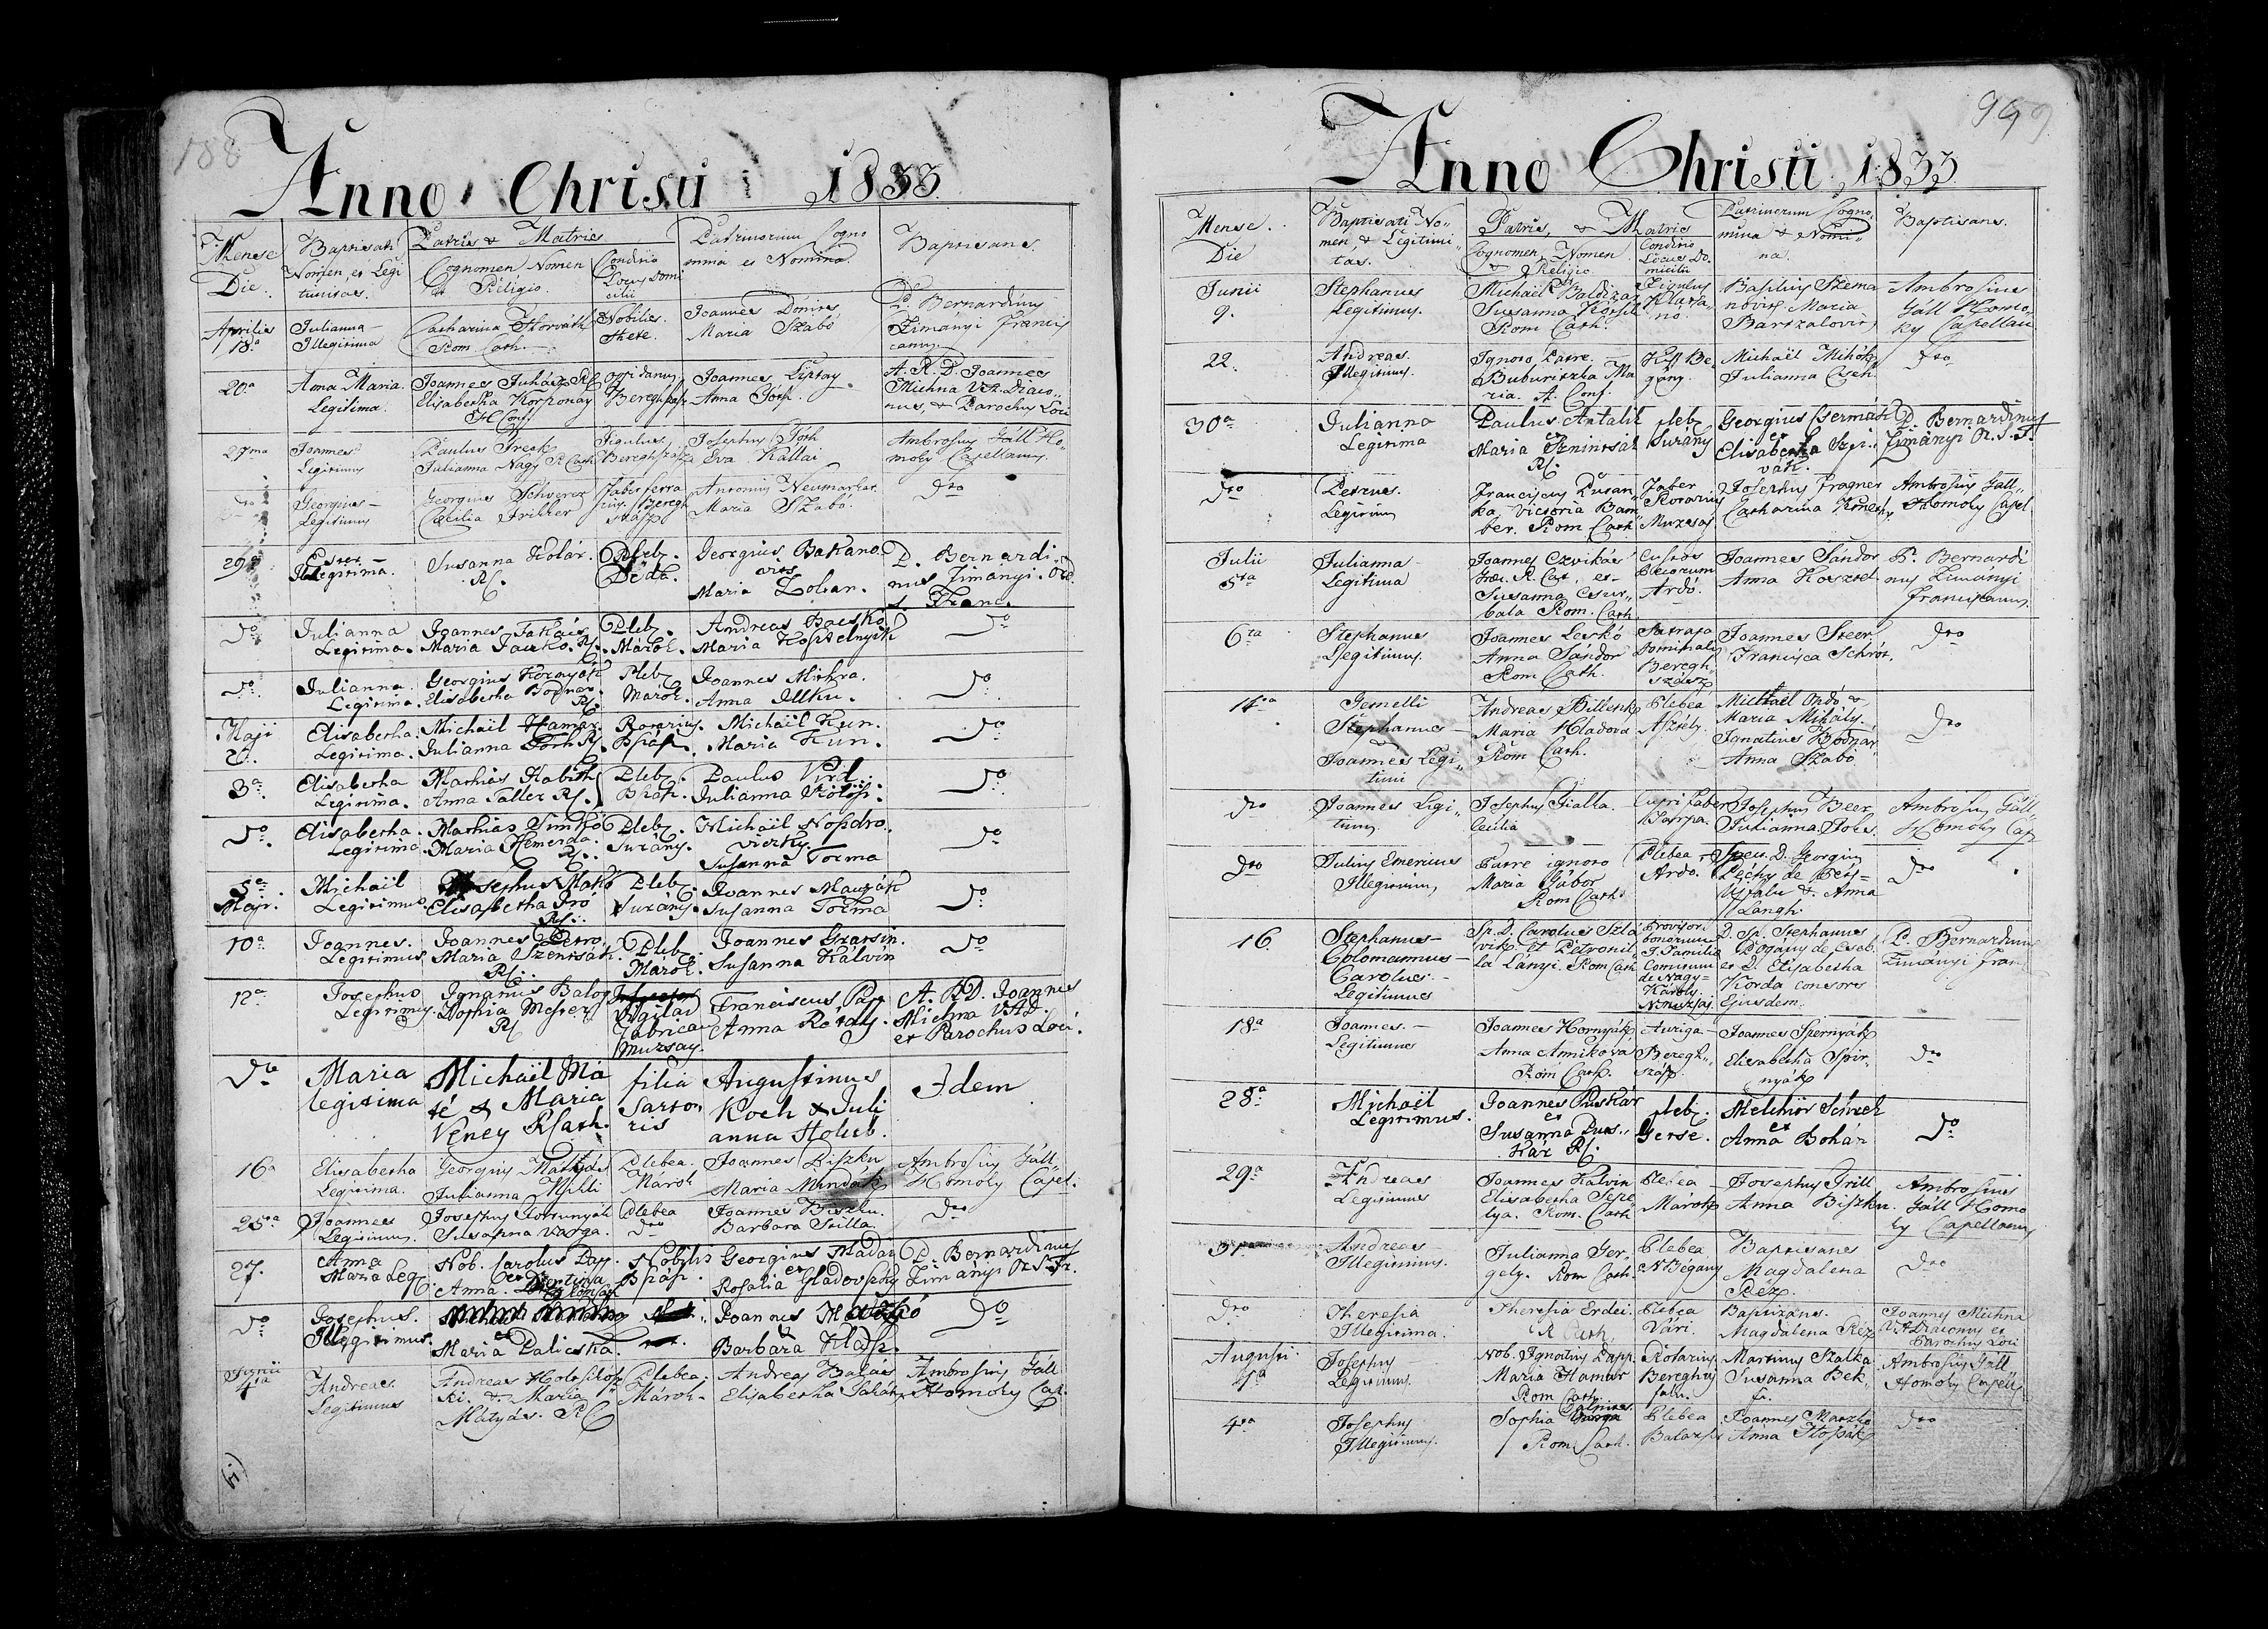 188
Anno Christi 1833
Mense
Die
Baptisati
Nomen et Legi
timitas.
Patris & Matris
Cognomen Nomen
et Religio.
Conditio
Locus Domi
cilii
Patrinorum Cogno
mina et Nomina.
Baptisans.
Aprilis
18a
Julianna
Illegitima
Catharina Horváth
Rom Cath.
Nobilis.
Maria Szabó
P. Bernardinus
Zimányi Francis
canus
20a
Anna Maria.
Legitima.
Joannes Juhász RC
Elisabetha Korponay
H. Conf.
Oppidanus
Joannes Liptay
Anna
A. R. D. Joannes
Michna V. A. Diaco
nus, & Parochus Loci
27ma
Joannes
Legitimus
Paulus
Julianna Nagy R Cath
Figulus
Bereghszasz
Josephus Tóth
Eva Kallai
Ambrosius Gáll Ho
moky Capellanus.
Dto
Georgius
Legitimus
Georgius Schverer
Cæcilia
Faber ferra
rius. Beregh
szász
Antonius Neumarker
Maria Szabó.
Dto
29a
Ester
Illegitima.
Susanna Kolár.
RC.
Pleb.
Déda.
Georgius Bakano
vits
Maria Zoltan.
P. Bernardi
nus Zimányi. Ord.
S. Franc.
Do
Julianna
Legitima.
Joannes Takács
Maria Jacko. RC.
Pleb.
Márok.
Andreas Bacskó
Maria
Do
Do
Julianna.
Legitima.
Georgius Hornyák
Elisabetha Bodnar.
RC.
Pleb
Marok.
Joannes Michra.
Anna Illku.
Do
Maji
2.
Elisabetha.
Legitima.
Michaël Hamar
Julianna Tóth RC.
Rotarius.
Bszász.
Michaël Kun.
Maria Kun.
Do
3a
Elisabetha
Legitima.
Mathias Habith
Anna Faller RC.
Pleb.
Bszász.
Paulus
Julianna
Do
Do
Elisabetha.
Legitima.
Mathias Simkó
Maria Hemerda.
RC.
Pleb.
Surány.
Michaël Noszdro
viczky
Susanna Torma
Do
5a
Maji.
Michaël
Legitimus.
Josephus Makó
Elisabetha Iró
RC.
Pleb.
Surány.
Joannes Mauzák
Susanna Torma
Do
10a
Joannes.
Legitimus
Joannes Petro
Maria
RC.
Pleb
Márok.
Joannes
Susanna Kálvin
Do
12a
Josephus
Legitimus.
Ignatius Balog
Sophia Mester
RC
Vigilar
Fabricae
Muzsay.
Franciscus Pap
Anna
A. R. D. Joannes
Michna V. A. D.
et Parochus Loci.
Do
Maria
legitima
Michaël Má
té & Maria
Veney RCath.
filia
Sarto
ris
Augustinus
Koch & Juli
anna Holub.
Idem
16a
Elisabetha
Legitima.
Georgius Mátyás
Julianna
Plebea.
Márok
Joannes Biszku
Maria
Ambrosius Gáll
Homoky Capel.
25a
Joannes
Legitimus.
Josephus
Susanna Varga.
Plebea
dto
Joannes Biszku.
Barbara
Dto
27.
Anna
Maria Leg.
Nob. Carolus Papp.
et
Anna.
Nobilis
Bszász.
Georgius Madai
et
Rosalia Gladovszky
P. Bernardinus
Zimányi O. S. Fr.
Do
Josephus.
Illegitimus.
Maria Palicska.
Joannes
Barbara
Do
Junii
4ta
Andreas
Legitimus
Andreas
ki. & Maria
Mátyás. RC
Plebea.
Márok
Andreas Balás
Elisabetha
Ambrosius Gáll
Homoky Cap.
99
Anno Christi 1833
Mense.
Die
Baptisati No
men, & Legitimi
tas.
Patris, & Matris
Cognomen, Nomen
& Religio
Conditio
Locus Do
micilii
Patrinorum Cogno
mina & Nomi
na.
Baptisans.
Junii
9.
Stephanus
Legitimus.
Michaël Baldizar
Susanna
Rom Cath.
Figulus
Basilius Szema
novits Maria
Bartzalovits
Ambrosius
Gáll Homo
ky Capellan
22.
Andreas.
Illegitimus.
Ignoto Patre.
Buburiszka Ma
ria. A. Conf.
Kis Be
gány.
Michaël Mihók
Julianna Cseh.
Dto
30a
Julianna
Legitima
Paulus Antalik
et
Maria
RC.
pleb
Surány
Georgius Czermák
et
Elisabetha Szpi
vák.
P. Bernardinus
Zimányi O. S. F.
Dto
Petrus.
Legitimus
Franciscus Pusan
ka, Victoria Bam
ber. Rom Cath
Faber
Rotarius
Muzsaj
Josephus Fragner
Catharina
Ambrosius Gáll
Homoky Capel
Julii
5ta
Julianna
Legitima
Joannes Czvikás
Græc. R. Cat, et
Susanna Csur
bala Rom. Cath
Custos
Pecorum
Ardó.
Joannes Sándor
Anna
P. Bernardi
nus Zimányi
Franciscanus.
6ta
Stephanus
Legitimus.
Joannes Leskó
Anna Sándor
Rom Cath.
Satrapa
Dominalis
Beregh
szász
Joannes Steer
Francisca Schrót.
Dto
14a
Gemelli
Stephanus
&
Joannes Legi
timi
Andreas
Maria Hladova
Rom Cath.
Plebea
Michaël Ordó &
Maria Mihály.
Ignatius Bodnar
Anna Szabó
Dto
Dto
Joannes Legi
timus
Josephus Fialka.
Cecilia
Cupri faber
Josephus Beer
Julianna
Ambrosius Gáll
Homoky Cap
Dto
Julius Emericus
Illegitimus
Patre ignoto
Maria Gábor
Rom Cath.
Plebea
Ardó.
Spec. D. Georgius
Péchy de Péts
Ujfalu & Anna
Langh.
Dto
16
Stephanus
Colomannus
Carolus
Legitimus
Sp. D. Carolus Szlá
vik et Petronil
la Lányi. Rom Cath
Provisori
bonorum
I. Familiæ
Comitum
de Nagy
Károly.
N. Muzsaj.
D. Sp. Stephanus
Bogány de Cseb
et D. Elisabetha
Korda consors
Ejusdem.
P. Bernardinus
Zimányi Fran
18a
Joannes.
Legitimus
Joannes Hornyák
Anna Annikova
Rom Cath.
Auriga
Beregh
szász
Joannes
Elisabetha
nyák
Dto
28a
Michaël
Legitimus.
Joannes Puskár
et
Susanna Pus
kár RC.
pleb.
Gerse.
Melchior
et
Anna Bohán
Do
29a
Andreas
Legitimus
Joannes Kalvin
Elisabetha Sepe
lya. Rom. Cath
Plebea
Márok
Josephus Trill
Anna Biszku.
Ambrosius
Gáll Homo
ky Capellanus
31
Andreas
Illegitimus.
Julianna Ger
gely. Rom Cath
Plebea
N Bégany
Baptisans
Magdalena
Réz
Dto
Dto
Theresia
Illegitima.
Theresia Erdei.
R Cath.
Plebea
Vári.
Baptizans.
Magdalena Réz
Joannes Michna
V. A. Diaconus et
Parochus Loci
Augusti
1a
Josephus
Legitimus.
Nob. Ignatius Papp.
Maria Hamar
Rom Cath.
Rotarius
Bereghuj
falu.
Martinus Szalka
Susanna Bek
Ambrosius Gáll
Homoky Capell
4ta
Josephus
Illegitimus.
Sophia
Rom Cath.
Plebea
Joannes
Anna
Dto